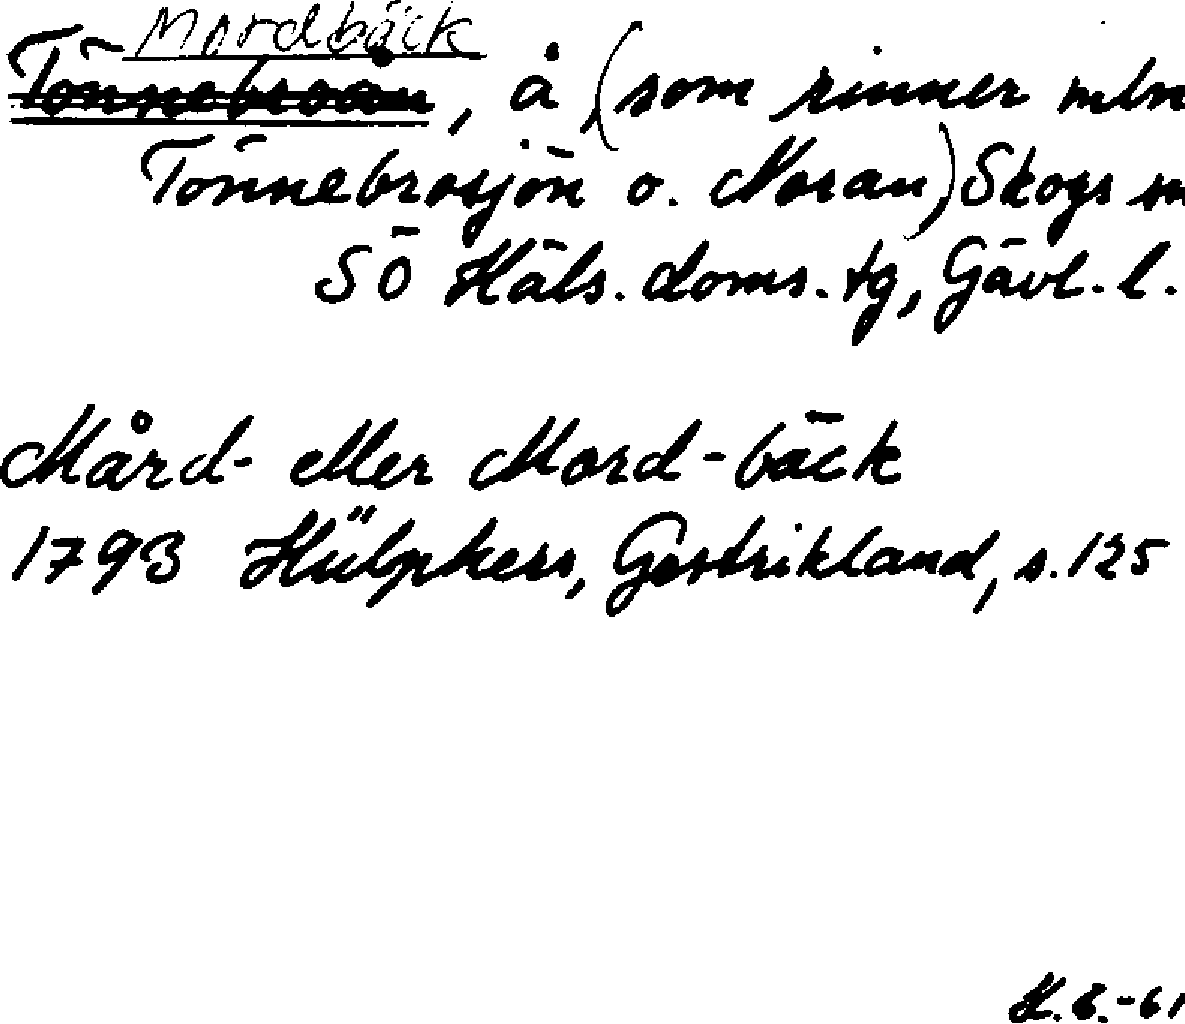 Mordbäck
Tönnebroån, å (som rinner mln
Tönnebrosjön o. Noran) Skogs sn
SÖ Häls. doms. tg, Gävl. l.
Mård- eller Mord-bäck
1793 Hülphers, Gestrikland, s. 125
H.B.-61